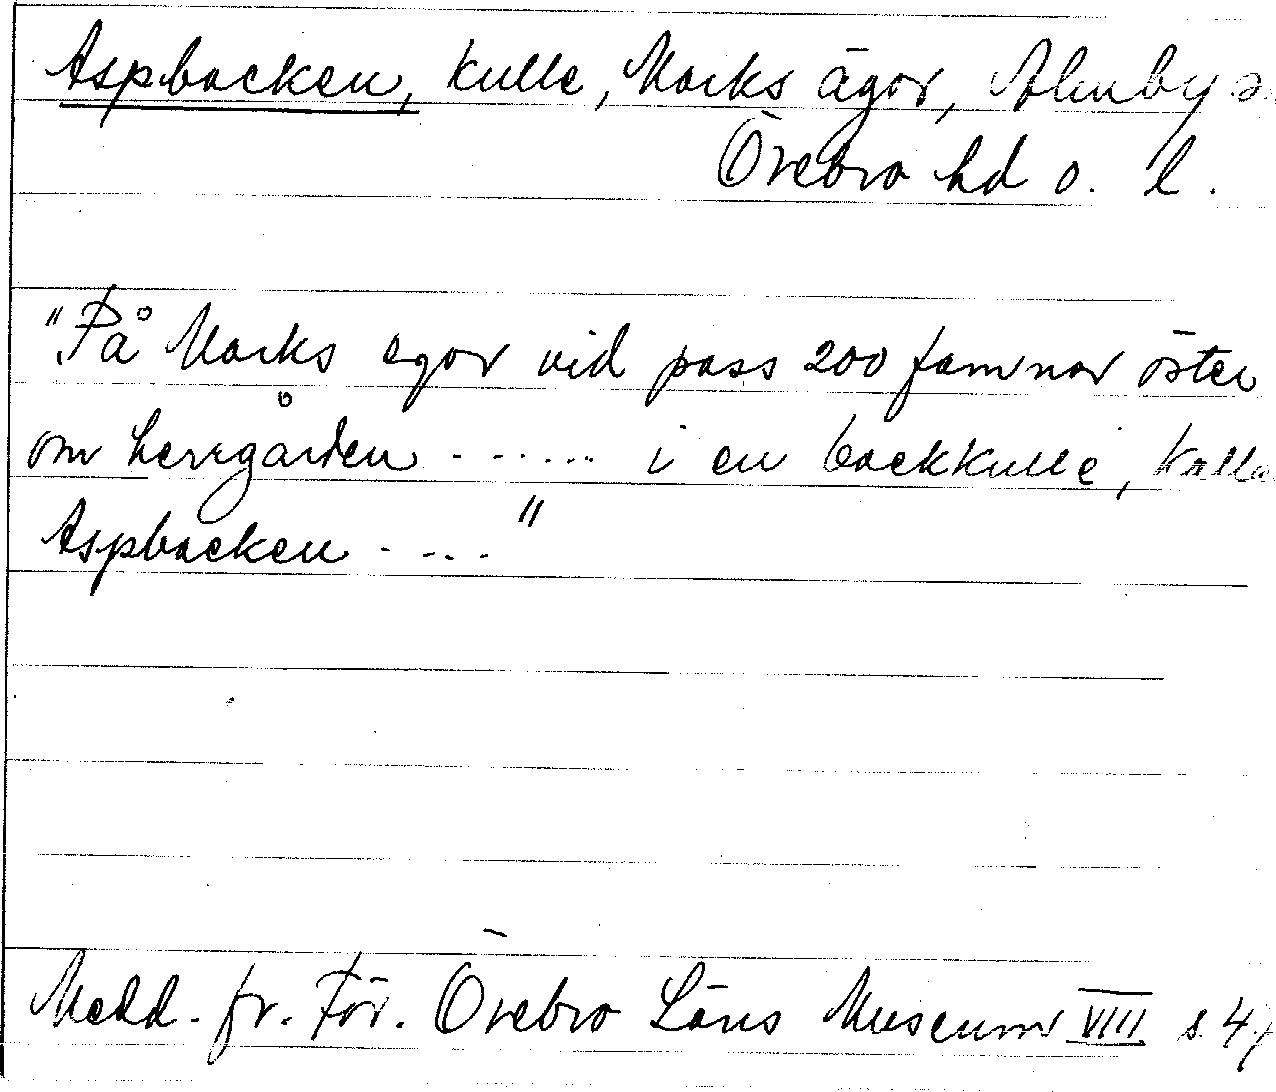 Aspbacken, kulle, Marks ägor, Almby s.
Örebro hd o. l.
"På Marks egor vid pass 200 famnar öster
om herrgården ...... i en backkulle, kalla
Aspbacken ...."
Medd. fr. För. Örebro Läns Museum VIII s. 47